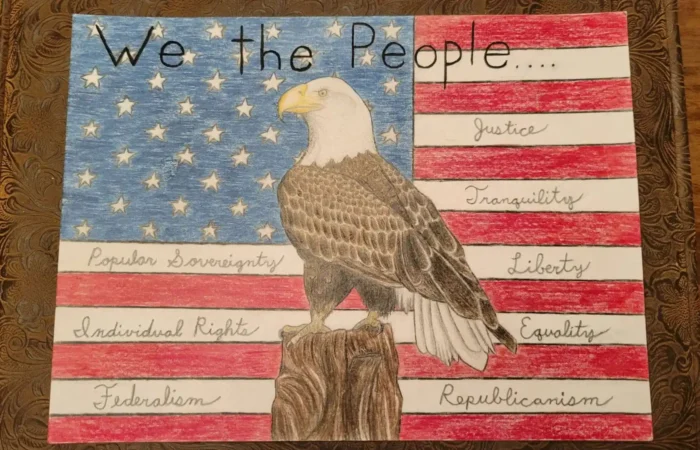 We the People....
Justice
Tranquility
Popular Sovereignty
Liberty
Individual Rights
Equality
Federalism
Republicanism